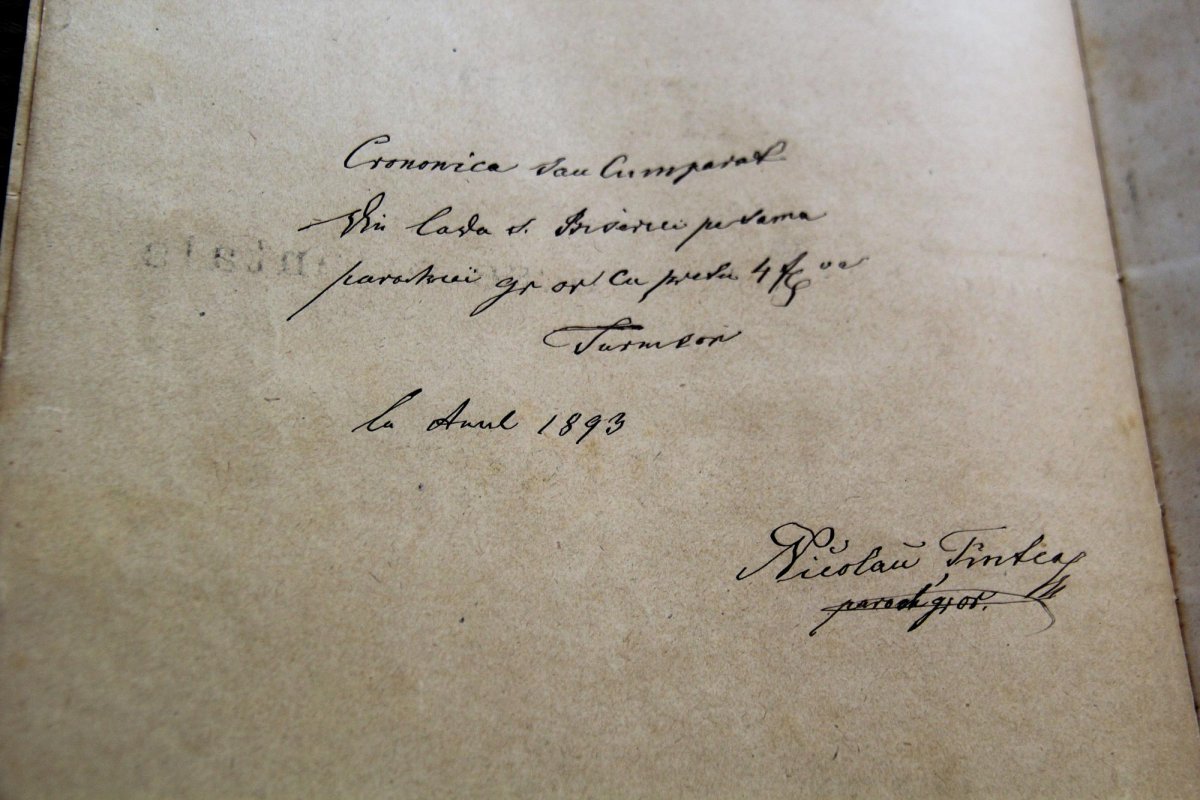 Crononica sau Cumparat
Din lada s. Biserici pe sama
parochiei gr or cu pretu 4 fl
la Anul 1893
Nicolaŭ Ţintea
paroch gr or.